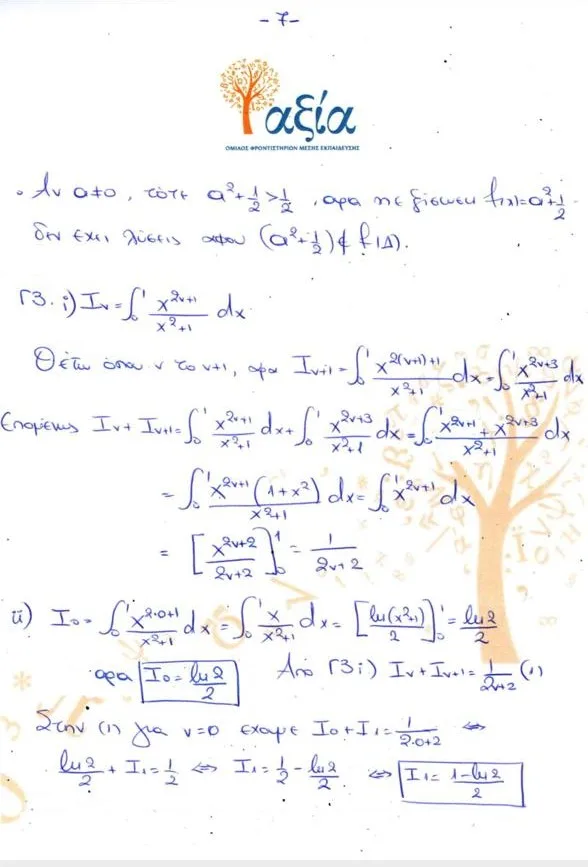 -7-
αξία
ΟΜΙΛΟΣ ΦΡΟΝΤΙΣΤΗΡΙΩΝ ΜΕΣΗΣ ΕΚΠΑΙΔΕΥΣΗΣ
• Αν α≠0, τότε α²+1/2>1/2, αρα η εξίσωση f(x)=α²+1/2
δεν εχει λύσεις αφου (α²+1/2)∉f(Δ).
Γ3. i) Iν=∫₀¹ x^(2ν+1)/(x²+1) dx
Θέτω όπου ν το ν+1, αρα Iν+1=∫₀¹ x^(2(ν+1)+1)/(x²+1) dx=∫₀¹ x^(2ν+3)/(x²+1) dx
Επομένως Iν+Iν+1=∫₀¹ x^(2ν+1)/(x²+1) dx+∫₀¹ x^(2ν+3)/(x²+1) dx=∫₀¹ (x^(2ν+1)+x^(2ν+3))/(x²+1) dx
=∫₀¹ x^(2ν+1)(1+x²)/(x²+1) dx=∫₀¹ x^(2ν+1) dx
=[x^(2ν+2)/(2ν+2)]₀¹=1/(2ν+2)
ii) I₀=∫₀¹ x^(2·0+1)/(x²+1) dx=∫₀¹ x/(x²+1) dx=[ln(x²+1)/2]₀¹=ln2/2
αρα I₀=ln2/2 Από Γ3i) Iν+Iν+1=1/(2ν+2) (1)
Στην (1) για ν=0 εχουμε I₀+I₁=1/(2·0+2) ⇔
ln2/2+I₁=1/2 ⇔ I₁=1/2-ln2/2 ⇔ I₁=(1-ln2)/2